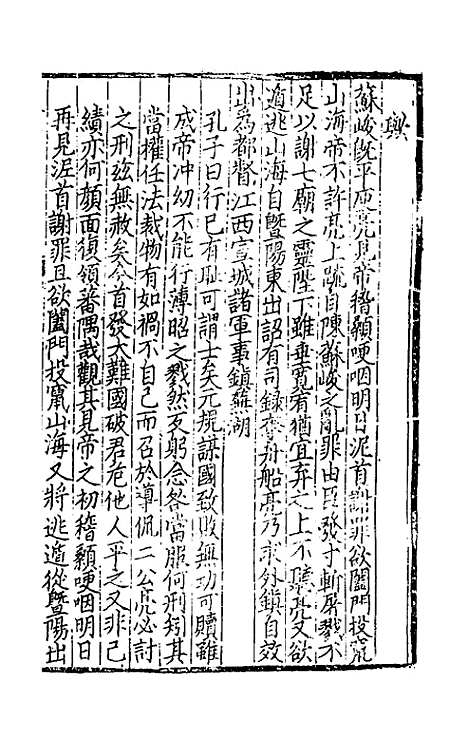 興
蘇峻既平庾亮見帝稽顙哽咽明日泥首謝罪欲闔門投竄
山海帝不許亮上疏自陳蘇峻之亂罪由臣發寸斬屠戮不
足以謝七廟之靈陛下雖垂寬宥猶宜棄之上不聽亮又欲
遁逃山海自暨陽東出詔有司錄奪舟船亮乃求外鎮自效
出為都督江西宣城諸軍事鎮蕪湖
孔子曰行己有恥可謂士矣元規謀國致敗無功可贖雖
成帝冲幼不能行薄昭之戮然反躬念咎當服何刑矧其
當權任法裁物有如禍不自己而召於導侃二公亮必討
之刑兹無赦矣今首發大難國破君危他人平之又非己
績亦何顏面復領蕃隅哉觀其見帝之初稽顙哽咽明日
再見泥首謝罪且欲闔門投竄山海又將逃遁從暨陽出